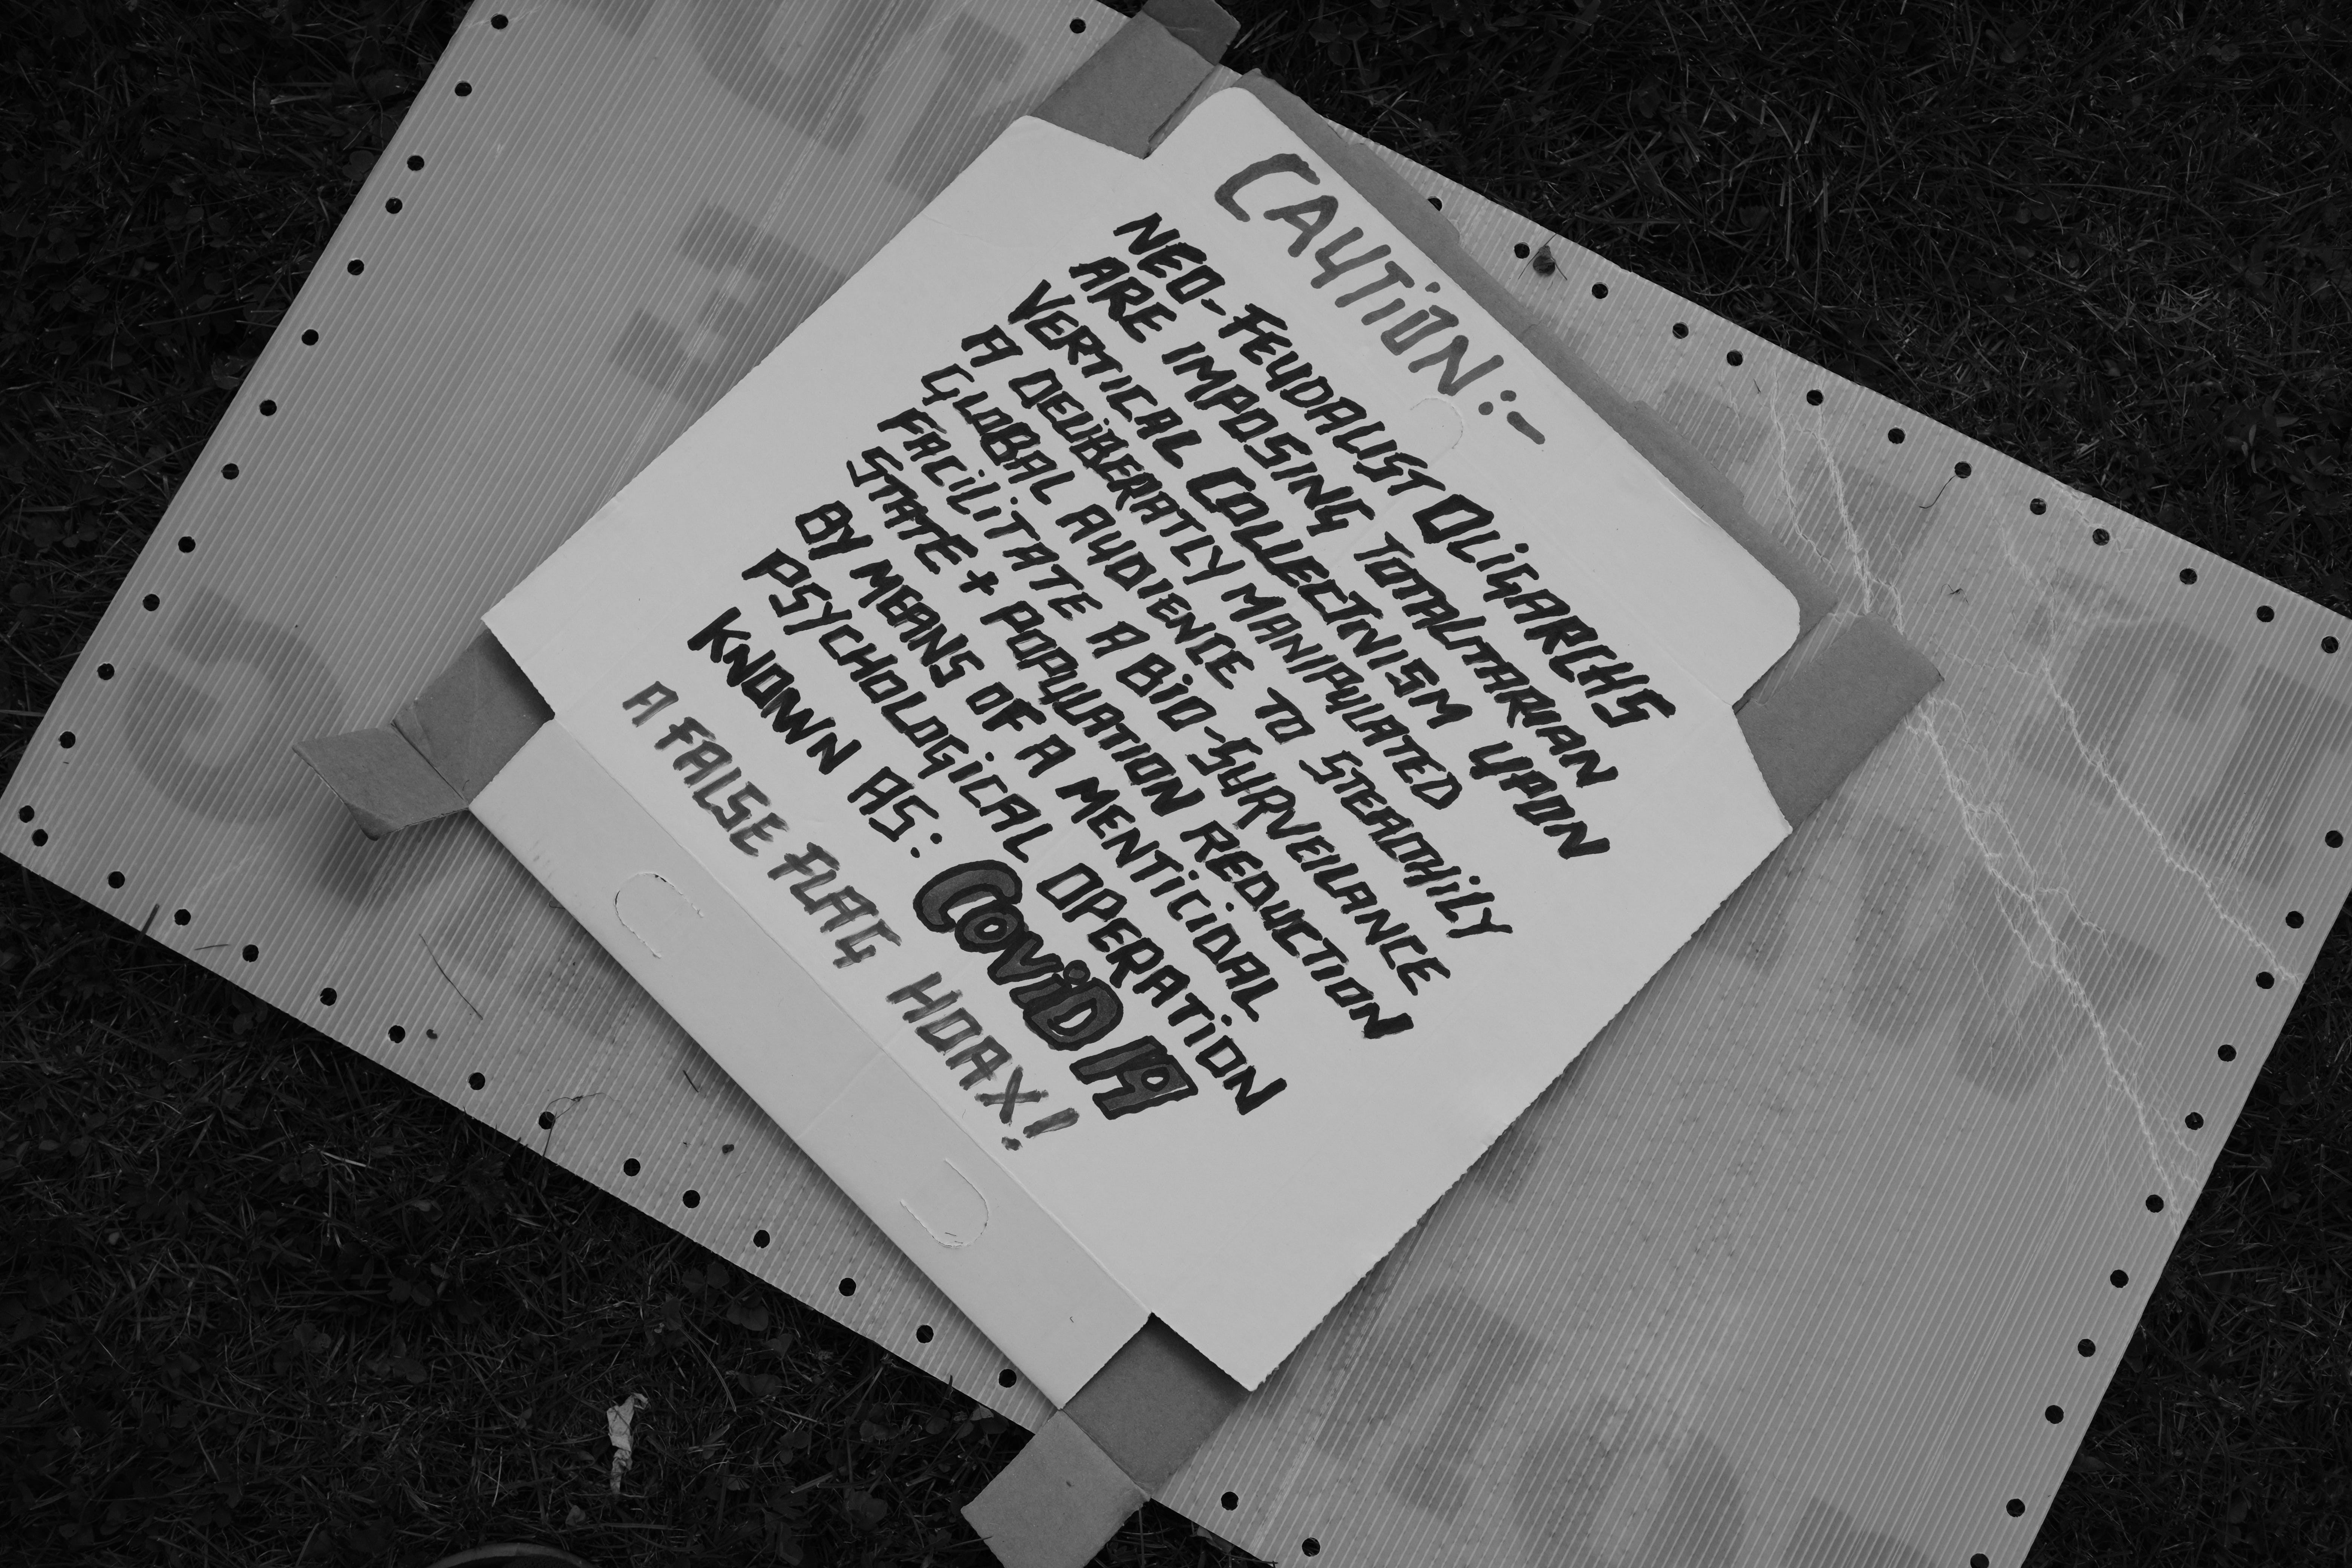 CAUTION:-
NEO-FEUDALIST OLIGARCHS
ARE IMPOSING TOTALITARIAN
VERTICAL COLLECTIVISM UPON
A DELIBERATLY MANIPULATED
GLOBAL AUDIENCE TO STEALTHILY
FACILITATE A BIO-SURVEILANCE
STATE + POPULATION REDUCTION
BY MEANS OF A MENTICIDAL
PSYCHOLOGICAL OPERATION
KNOWN AS: COVID 19
A FALSE FLAG HOAX!